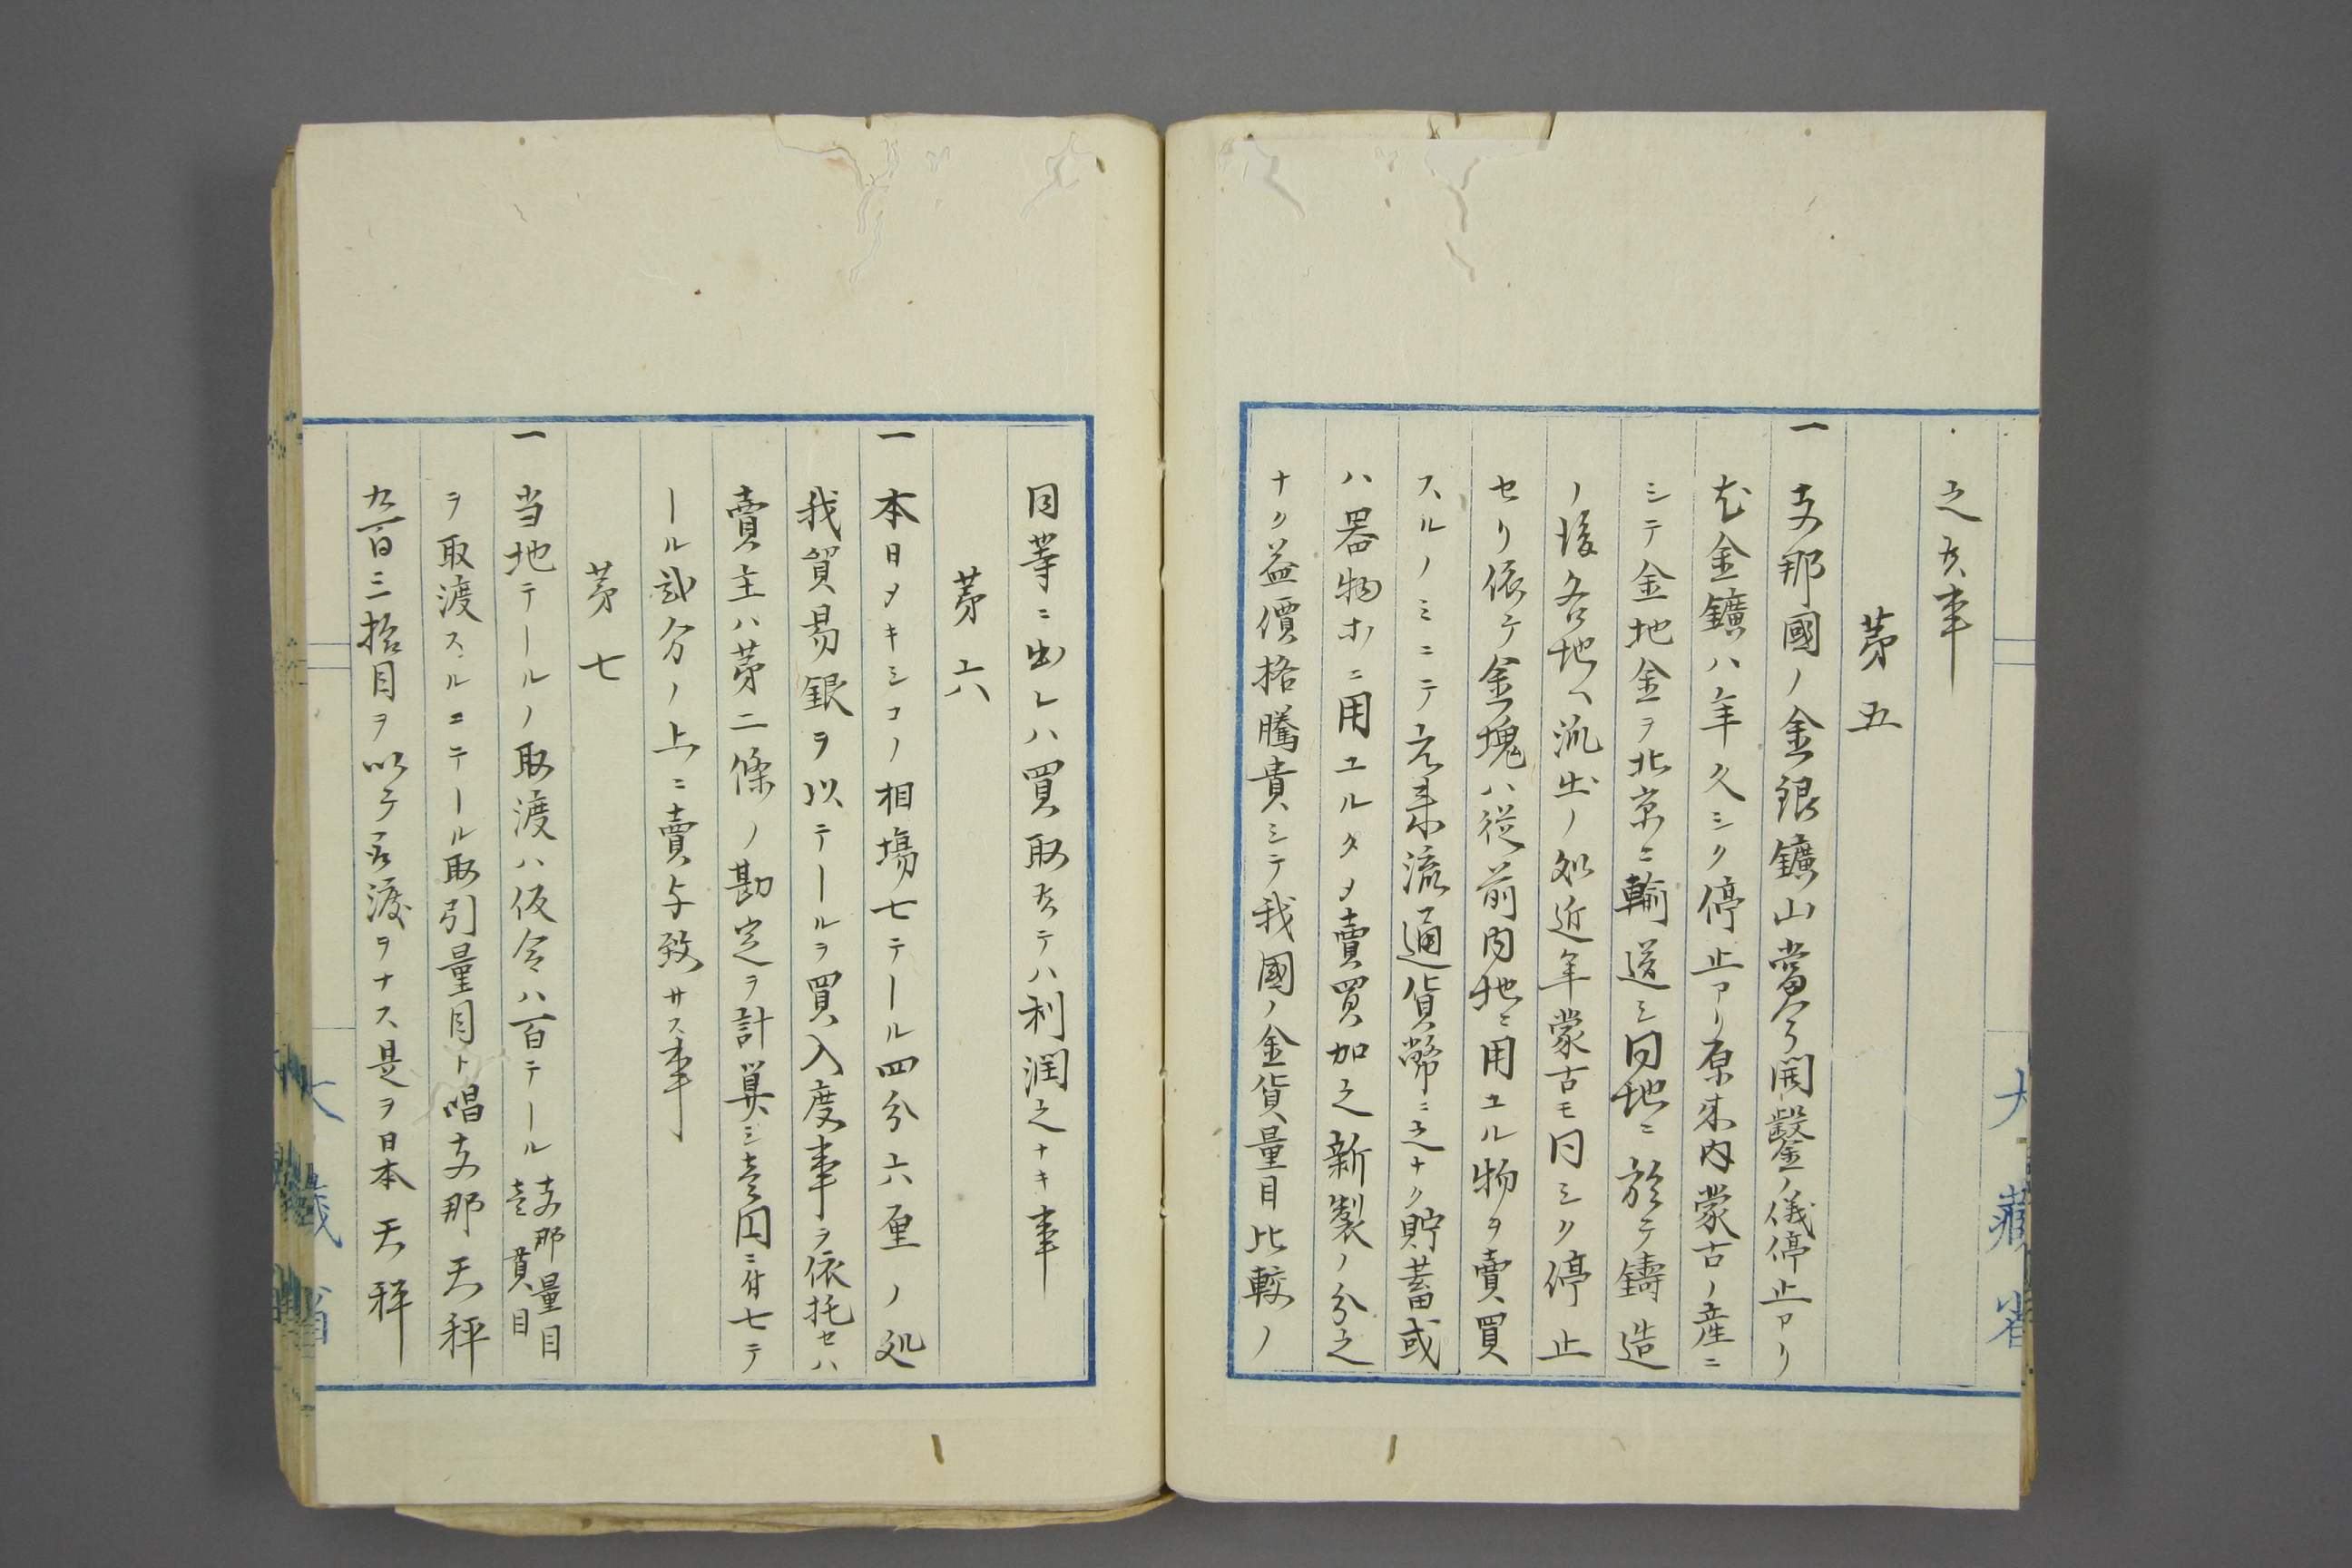 之候事
第五
一支那國ノ金銀鑛山當今開鑿ノ儀停止アリ
尤金鑛ハ年久シク停止アリ原来内蒙古ノ産ニ
シテ金地金ヲ北京ニ輸送シ同地ニ於テ鑄造
ノ後各地ヘ流出ノ処近年蒙古モ同シク停止
セリ依テ金塊ハ從前内地ニ用ユル物ヲ賣買
スルノミニテ元来流通貨幣ニ之ナク貯蓄或
ハ器物ホニ用ユルタメ賣買加之新製ノ分之
ナク益價格騰貴シテ我國ノ金貨量目比較ノ
大藏省
同等ニ出レハ買取候テハ利潤之ナキ事
第六
一本日メキシコノ相塲七テール四分六厘ノ処
我貿易銀ヲ以テールヲ買入度事ヲ依托セハ
賣主ハ第二條ノ勘定ヲ計算シ壱円ニ付七テ
ール弐分ノ上ニ賣与致サス事
第七
一当地テールノ取渡ハ仮令ハ百テール支那量目壱貫目
ヲ取渡スルニテール取引量目ト唱支那天秤
九百三拾目ヲ以テ受渡ヲナス是ヲ日本天秤
大藏省